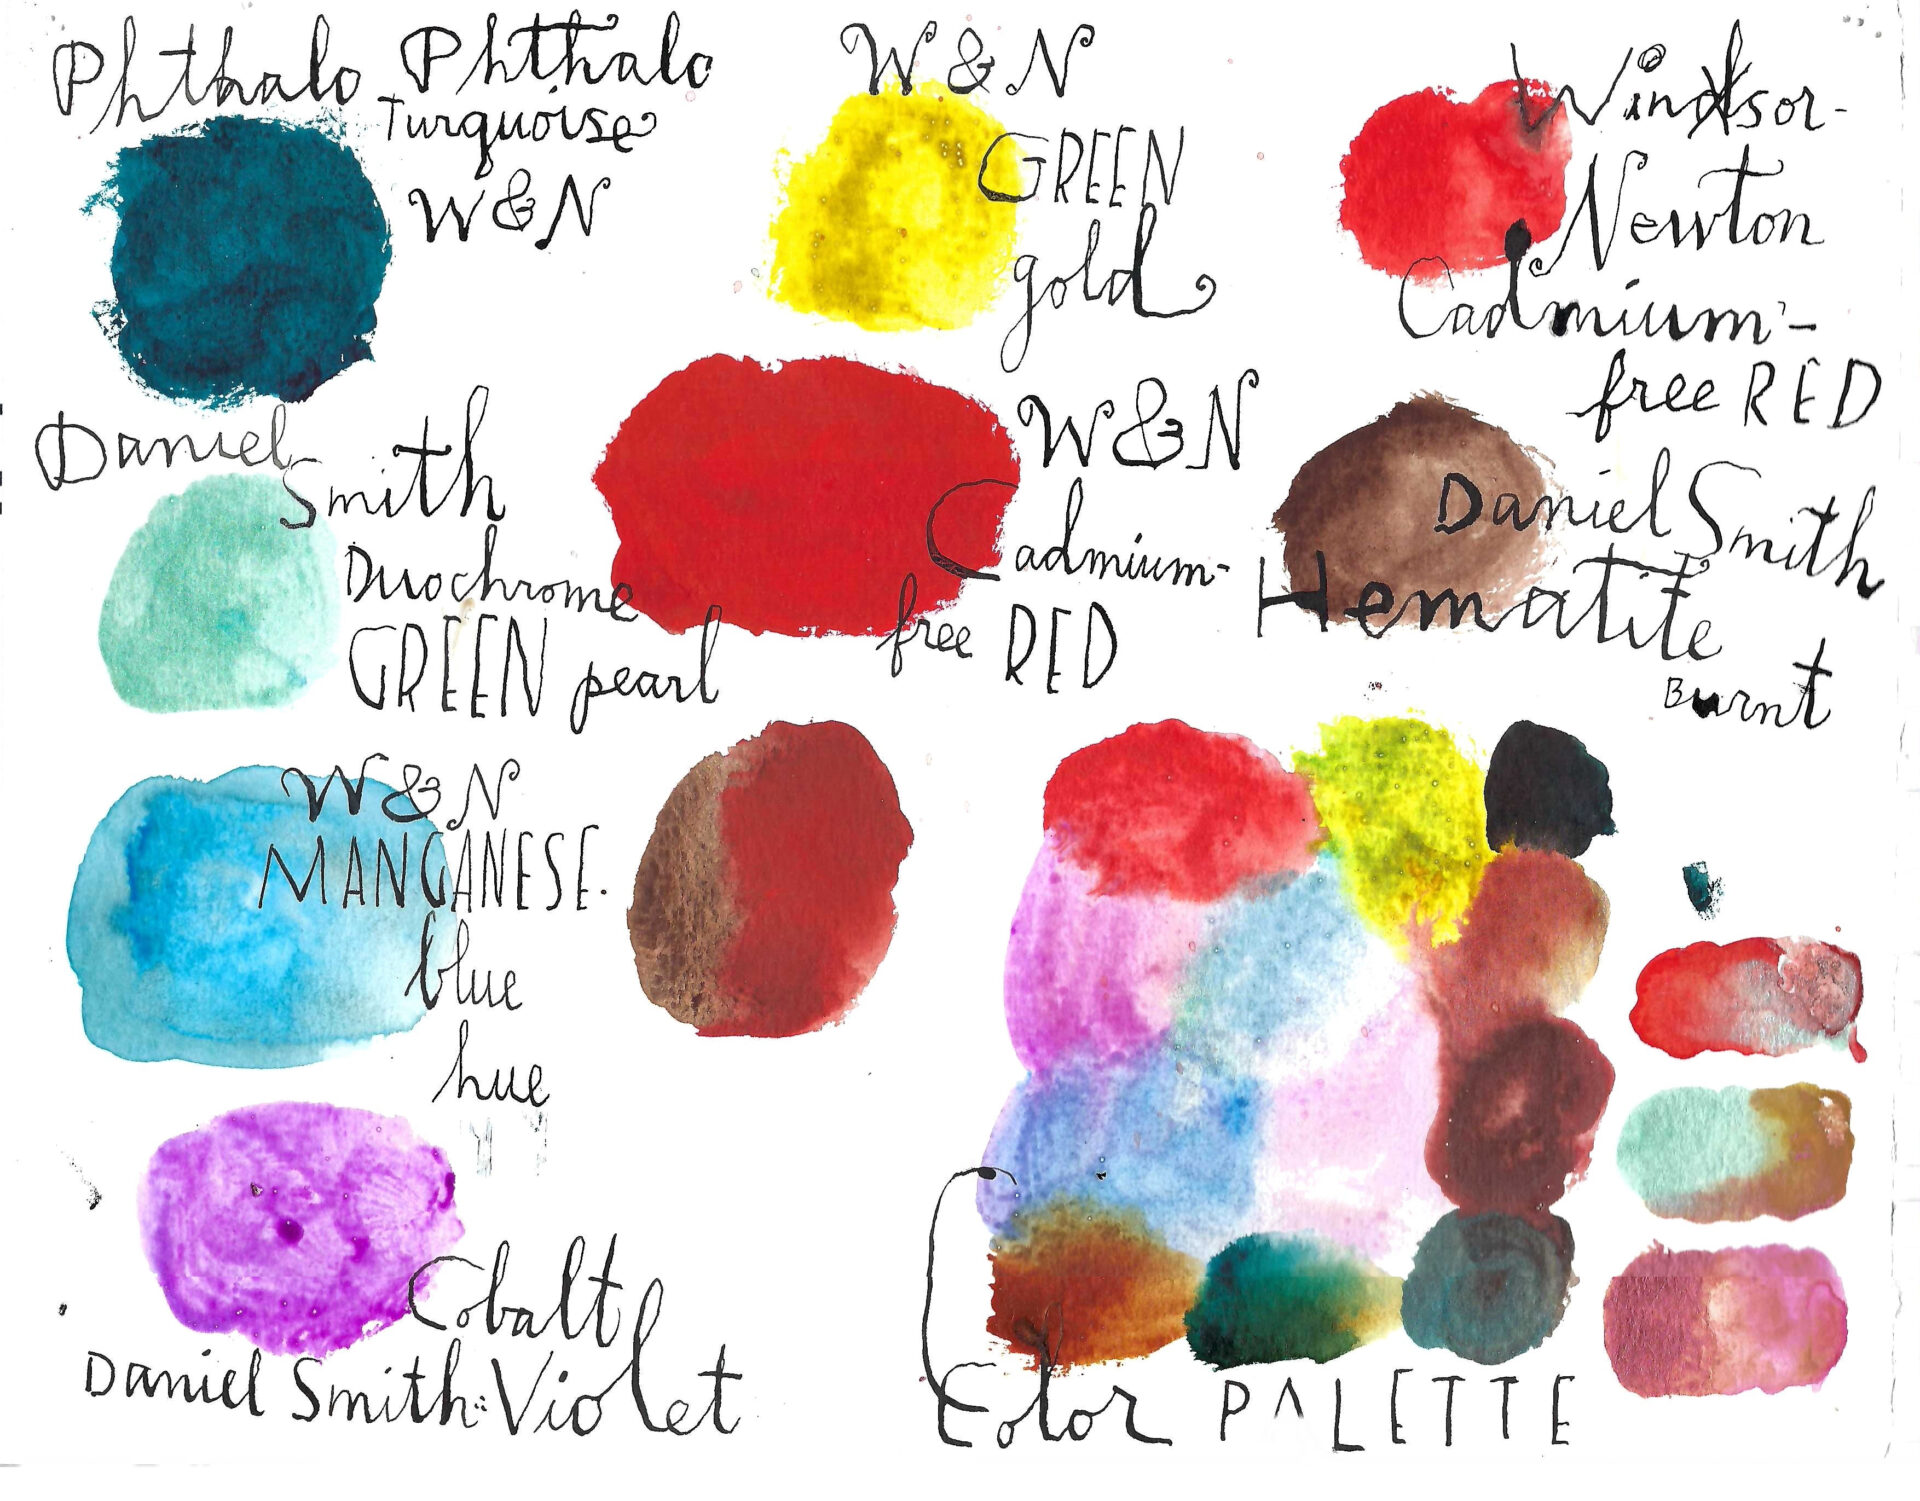 Phthalo
Phthalo
Turquoise
W&N
W&N
GREEN
gold
Windsor-
Newton
Cadmium-
free RED
Daniel
Smith
Duochrome
GREEN pearl
W&N
Cadmium-
free RED
Daniel Smith
Hematite
Burnt
W&N
MANGANESE.
blue
hue
Cobalt
Daniel Smith: Violet
Color PALETTE